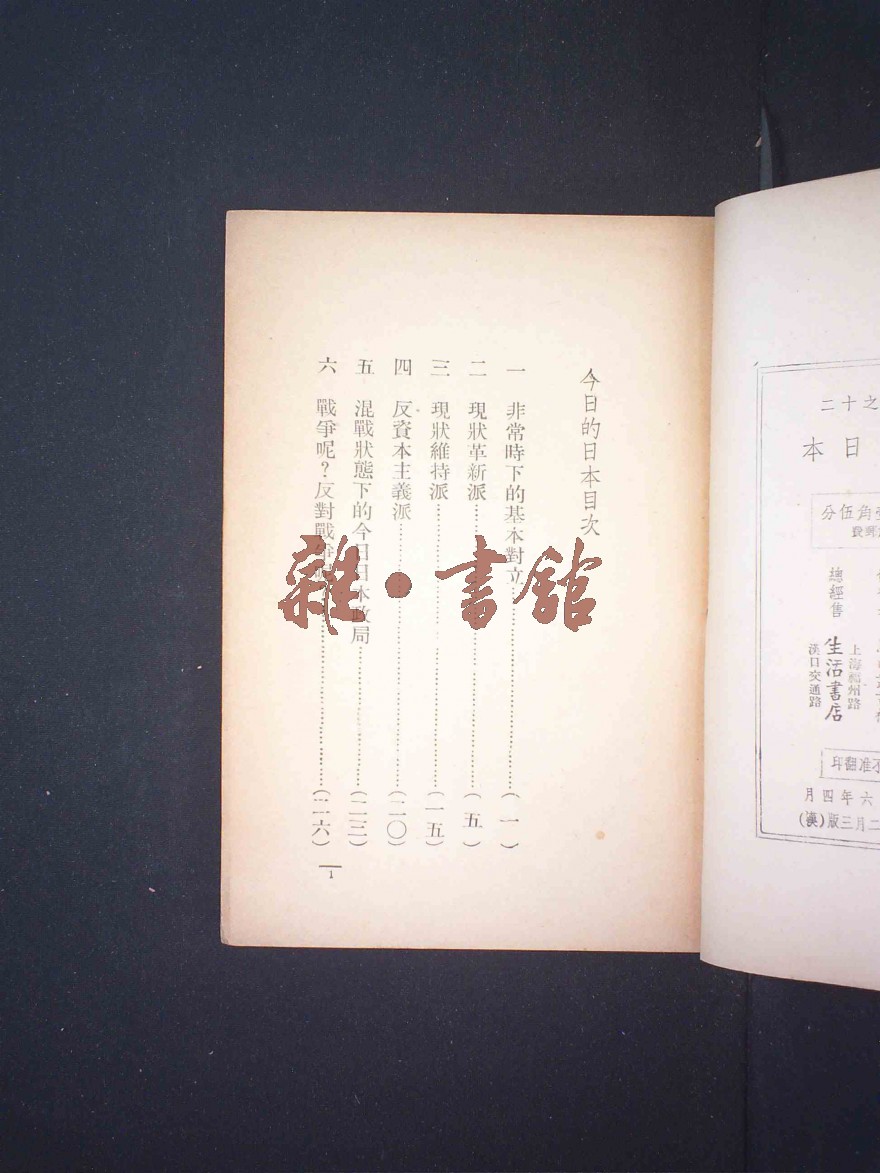 之十二
日本
角伍分
總經售
生活書店
上海福州路
漢口交通路
不准翻印
六年四月
二月三版(漢)
今日的日本目次
一 非常時下的基本對立……(一)
二 現狀革新派……(五)
三 現狀維持派……(一五)
四 反資本主義派……(二〇)
五 混戰狀態下的今日日本政局……(二三)
六 戰爭呢?反對戰爭呢……(二六)
1
雜·書館